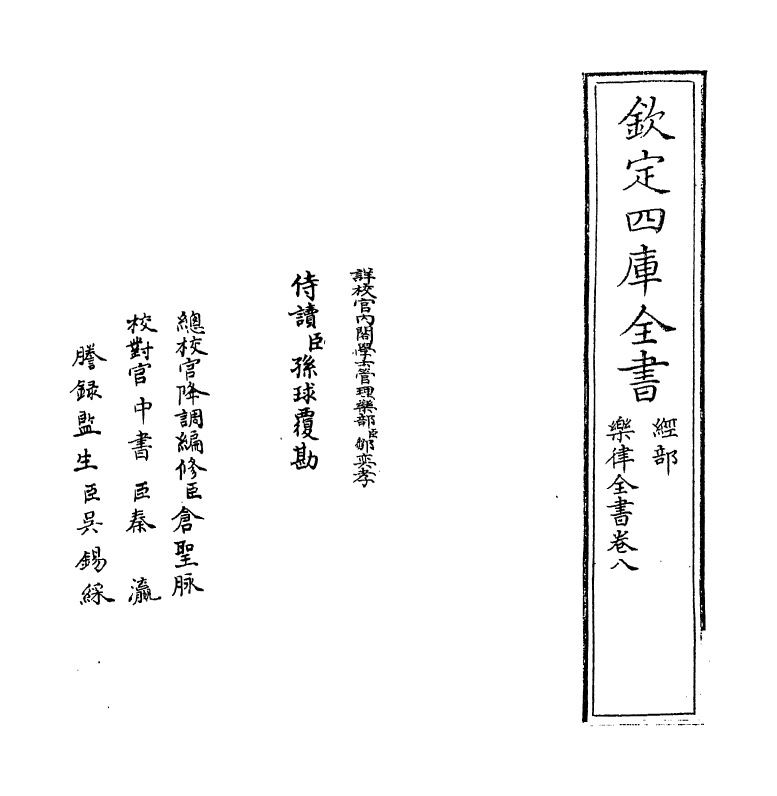 欽定四庫全書
經部
樂律全書卷八
詳校官內閣學士管理樂部臣鄒奕孝
侍讀臣孫球覆勘
總校官降調編修臣倉聖脉
校對官中書臣秦瀛
謄録監生臣吳錫綵